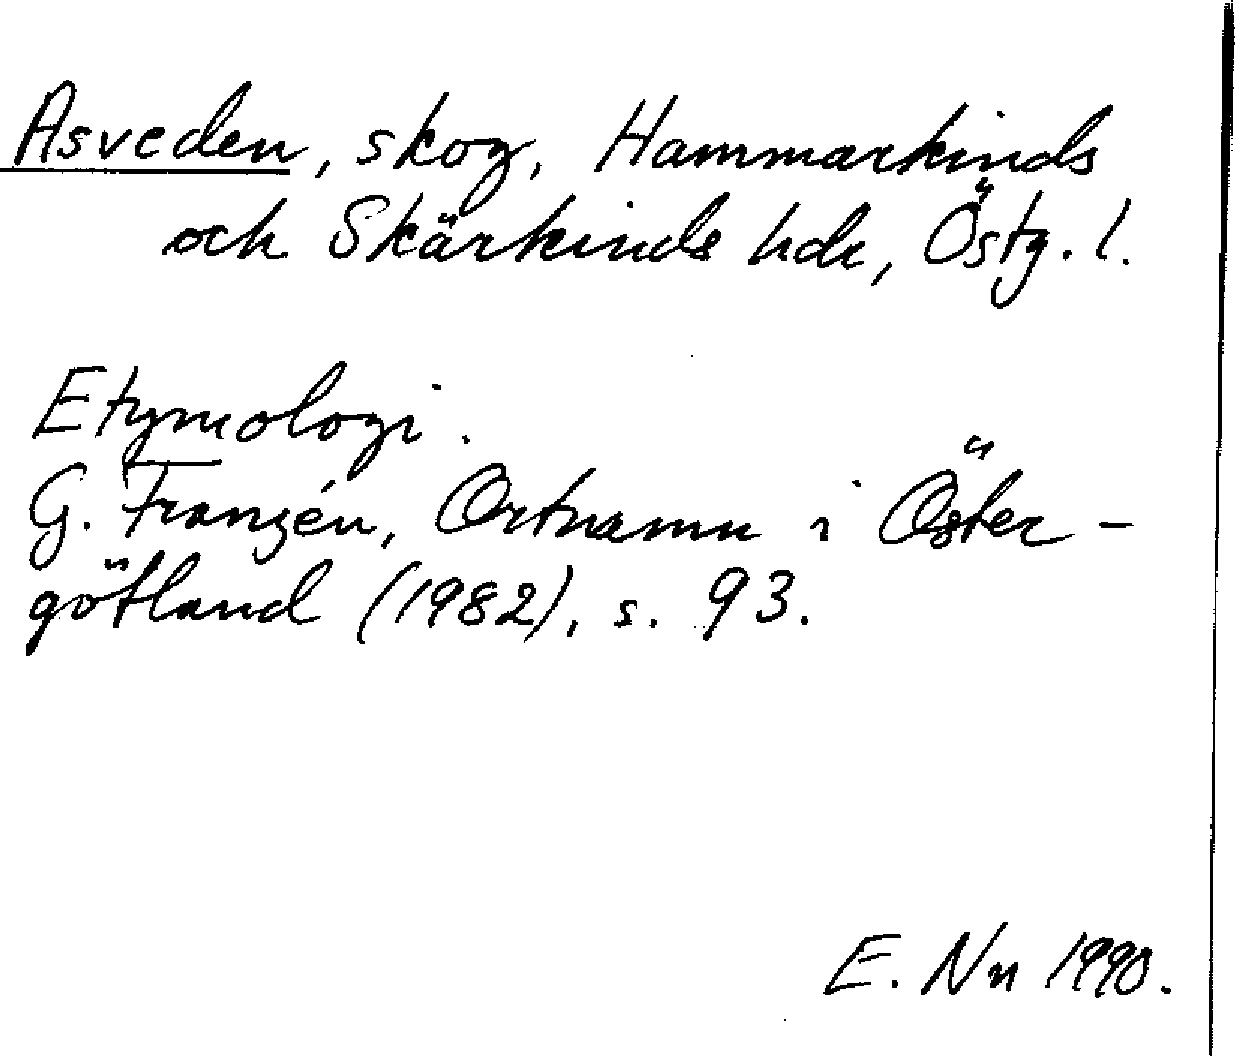 Asveden, skog, Hammarkinds
och Skärkinds hdr, Östg. l.
Etymologi.
G. Franzén, Ortnamn i Öster-
götland (1982), s. 93.
E. Nn 1990.